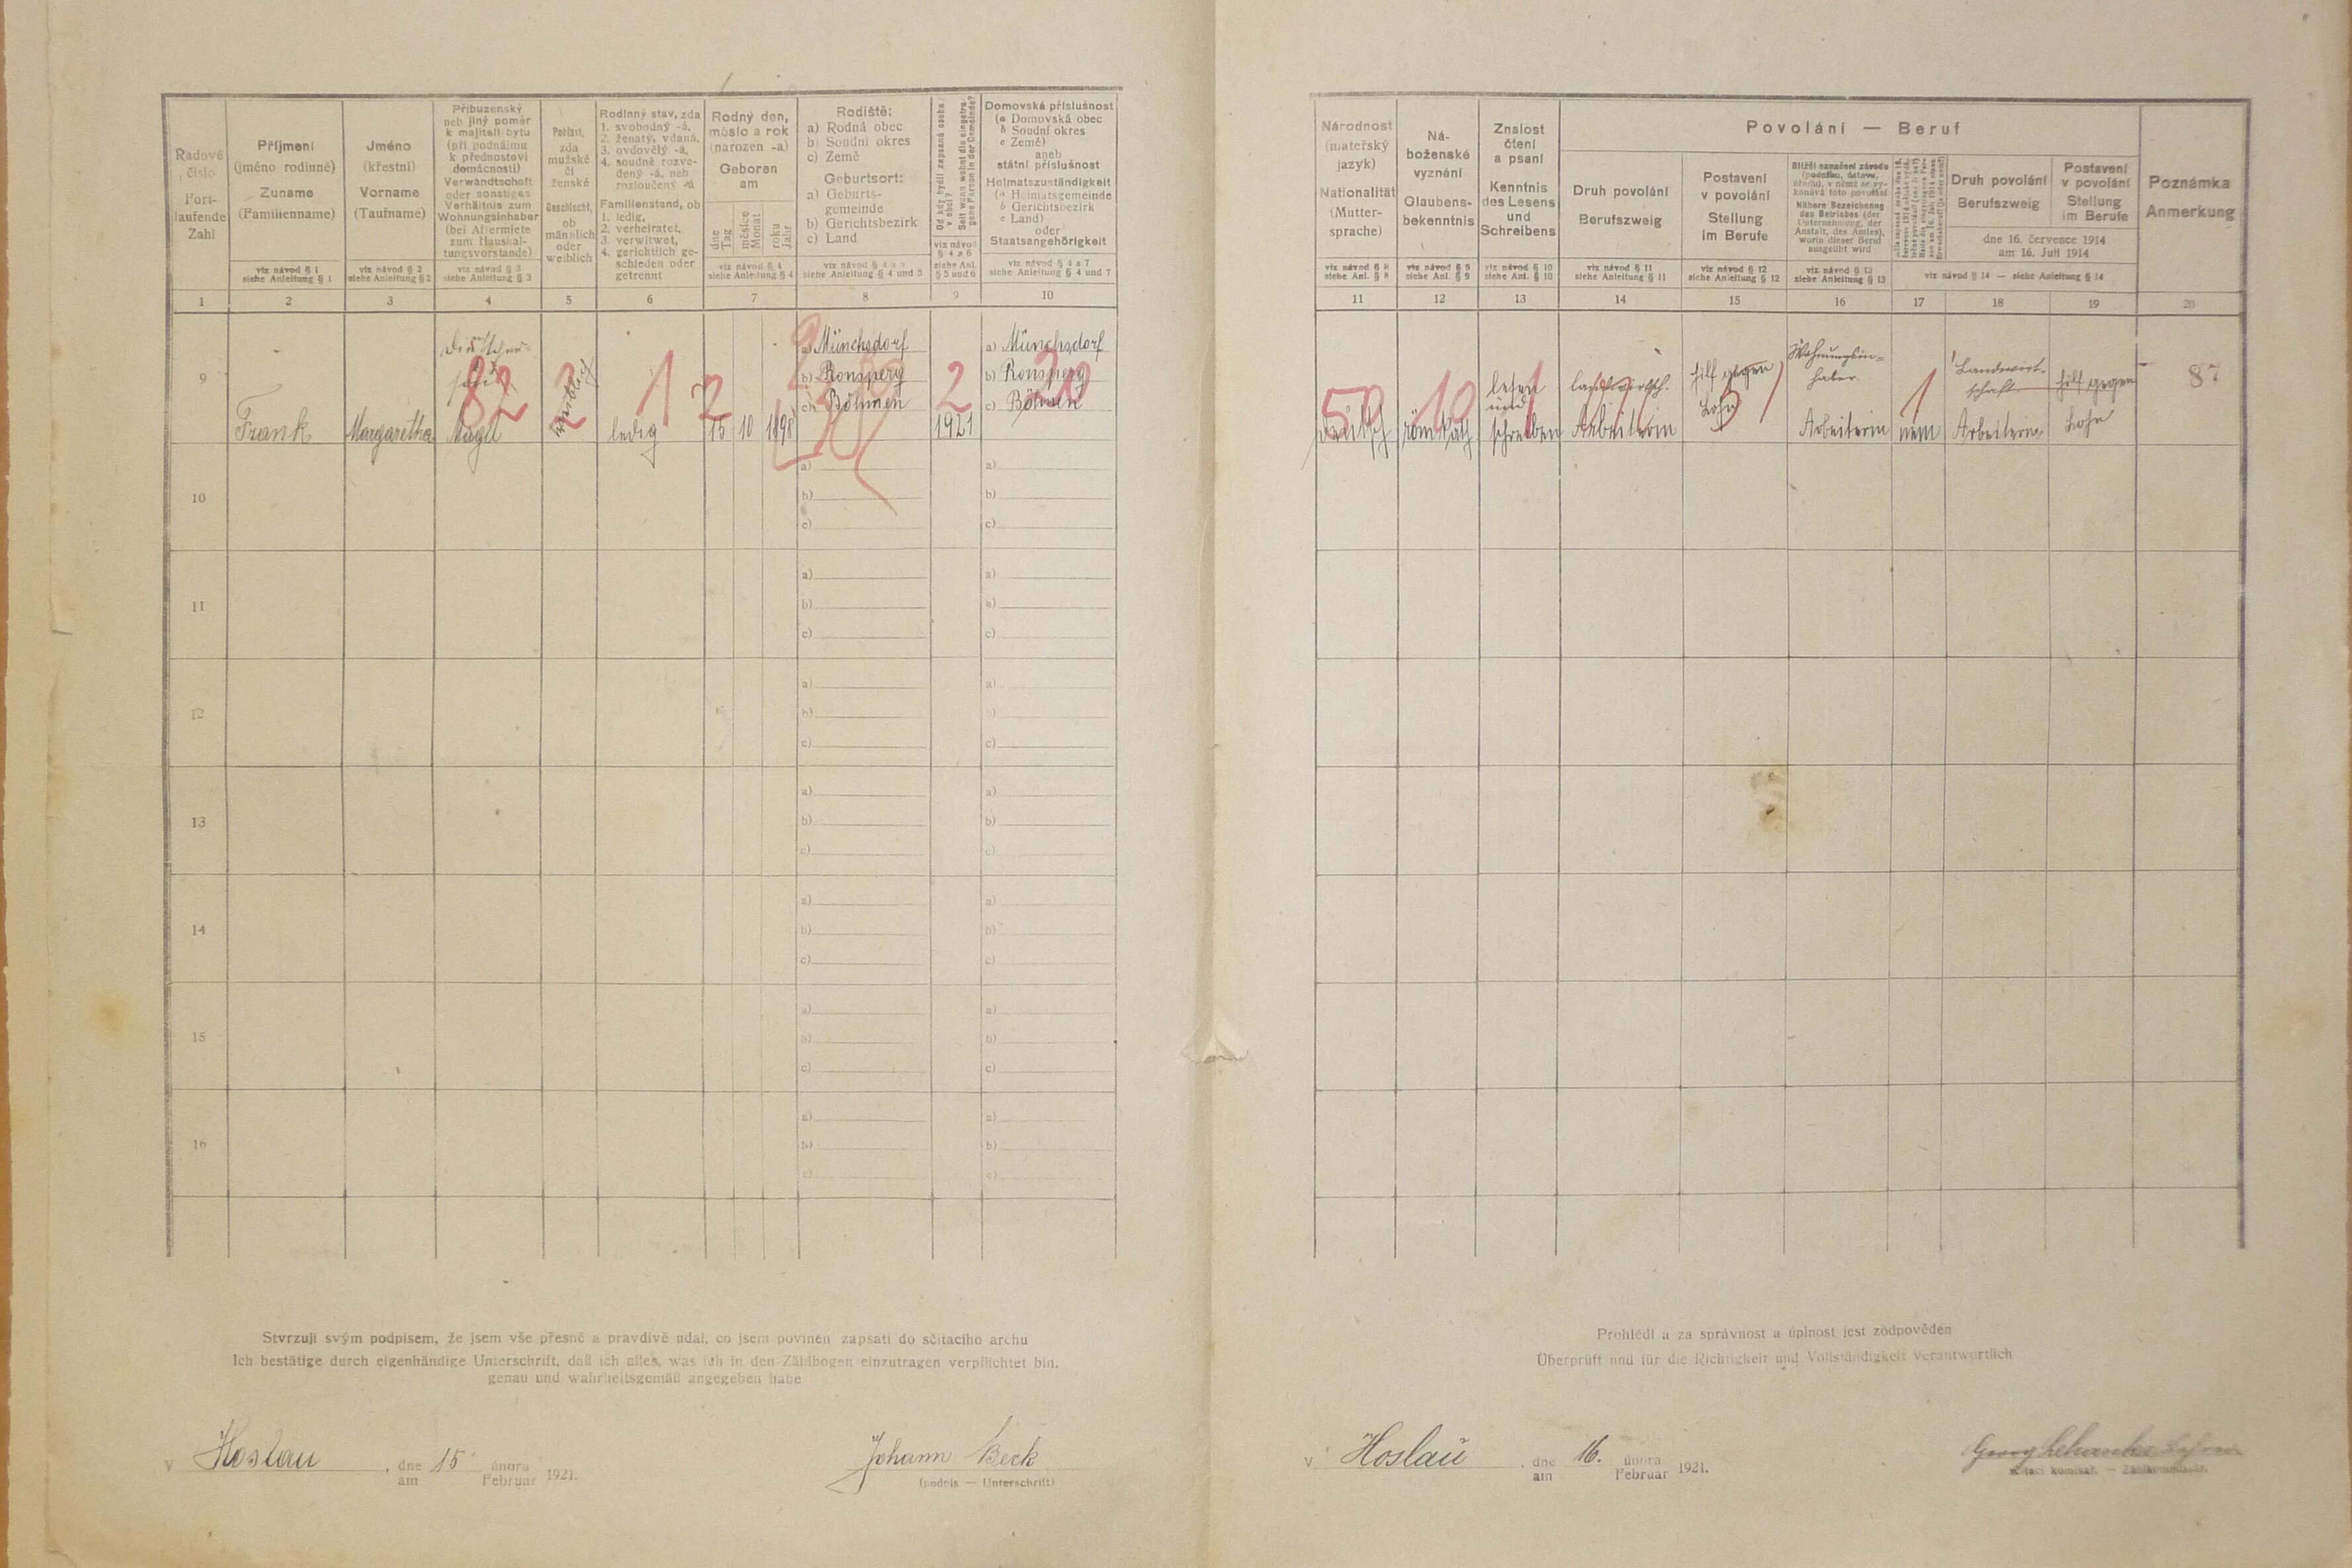 Řadové
číslo
Fort-
laufende
Zahl
1
Příjmení
(jméno rodinné)
Zuname
(Familienname)
viz návod § 1
siehe Anleitung § 1
2
Jméno
(křestní)
Vorname
(Taufname)
viz návod § 2
siehe Anleitung § 2
3
Příbuzenský
neb jiný poměr
k majiteli bytu
(při podnájmu
k přednostovi
domácnosti)
Verwandtschaft
oder sonstiges
Verhältnis zum
Wohnungsinhaber
(bei Aftermiete
zum Haushal-
tungsvorstande)
viz návod § 3
siehe Anleitung § 3
4
Pohlaví,
zda
mužské
či
ženské
Geschlecht,
ob
männlich
oder
weiblich
5
Rodinný stav, zda
1. svobodný -á,
2. ženatý, vdaná,
3. ovdovělý -á,
4. soudně rozve-
dený -á, neb
rozloučený -á
Familienstand, ob
1. ledig,
2. verheiratet,
3. verwitwet,
4. gerichtlich ge-
schieden oder
getrennt
6
Rodný den,
měsíc a rok
(narozen -a)
Geboren
am
dne
Tag
měsíce
Monat
roku
Jahr
viz návod § 4
siehe Anleitung § 4
7
Rodiště:
a) Rodná obec
b) Soudní okres
c) Země
Geburtsort:
a) Geburts-
gemeinde
b) Gerichtsbezirk
c) Land
siehe Anleitung § 4 und 5
8
Od kdy bydlí zapsaná osoba
v obci?
Seit wann wohnt die eingetra-
gene Person in der Gemeinde?
viz návod
§ 4 a 6
siehe Anl.
§ 5 und 6
9
Domovská příslušnost
(a Domovská obec
b Soudní okres
c Země)
aneb
státní příslušnost
Heimatszuständigkeit
(a Heimatsgemeinde
b Gerichtsbezirk
c Land)
oder
Staatsangehörigkeit
viz návod § 4 a 7
siehe Anleitung § 4 und 7
10
9
Frank
Margaretha
82
Magd
2
weiblich
1
ledig
2
15 10 1898
a) Münchsdorf
b) Ronsperg
c) Böhmen
2
1921
20
a) Münchsdorf
b) Ronsperg
c) Böhmen
10
a)
b)
c)
a)
b)
c)
11
a)
b)
c)
a)
b)
c)
12
a)
b)
c)
a)
b)
c)
13
a)
b)
c)
a)
b)
c)
14
a)
b)
c)
a)
b)
c)
15
a)
b)
c)
a)
b)
c)
16
a)
b)
c)
a)
b)
c)
Stvrzuji svým podpisem, že jsem vše přesně a pravdivě udal, co jsem povinen zapsati do sčítacího archu
Ich bestätige durch eigenhändige Unterschrift, daß ich alles, was ich in den Zählbogen einzutragen verpflichtet bin,
genau und wahrheitsgemäß angegeben habe
V Hoslau, dne 15 února 1921.
am Februar
Johann Beck
(podpis — Unterschrift)
Národnost
(mateřský
jazyk)
Nationalität
(Mutter-
sprache)
viz návod § 8
siehe Anl. § 8
11
Ná-
boženské
vyznání
Glaubens-
bekenntnis
viz návod § 9
siehe Anl. § 9
12
Znalost
čtení
a psaní
Kenntnis
des Lesens
und
Schreibens
viz návod § 10
siehe Anl. § 10
13
Povolání — Beruf
Druh povolání
Berufszweig
viz návod § 11
siehe Anleitung § 11
14
Postavení
v povolání
Stellung
im Berufe
viz návod § 12
siehe Anleitung § 12
15
Bližší označení závodu
(podniku, ústavu,
úřadu), v němž se vy-
konává toto povolání
Nähere Bezeichnung
des Betriebes (der
Unternehmung, der
Anstalt, des Amtes),
worin dieser Beruf
ausgeübt wird
viz návod § 13
siehe Anleitung § 13
16
17
Druh povolání
Berufszweig
18
Postavení
v povolání
Stellung
im Berufe
dne 16. července 1914
am 16. Juli 1914
viz návod § 14 — siehe Anleitung § 14
19
Poznámka
Anmerkung
20
50
deutsch
10
röm kath
1
lesen
und
schreiben
landwirtsch.
Arbeiterin
hilf gegen
Lohn
Wohnungsin-
haber
Arbeiterin
1
nein
Landwirt-
schaft
Arbeiterin
hilf gegen
Lohn
87
Prohlédl a za správnost a úplnost jest zodpověden
Überprüft und für die Richtigkeit und Vollständigkeit verantwortlich
V Hoslau, dne 16. února 1921.
am Februar
Georg
sčítací komisař. — Zählkommissär.